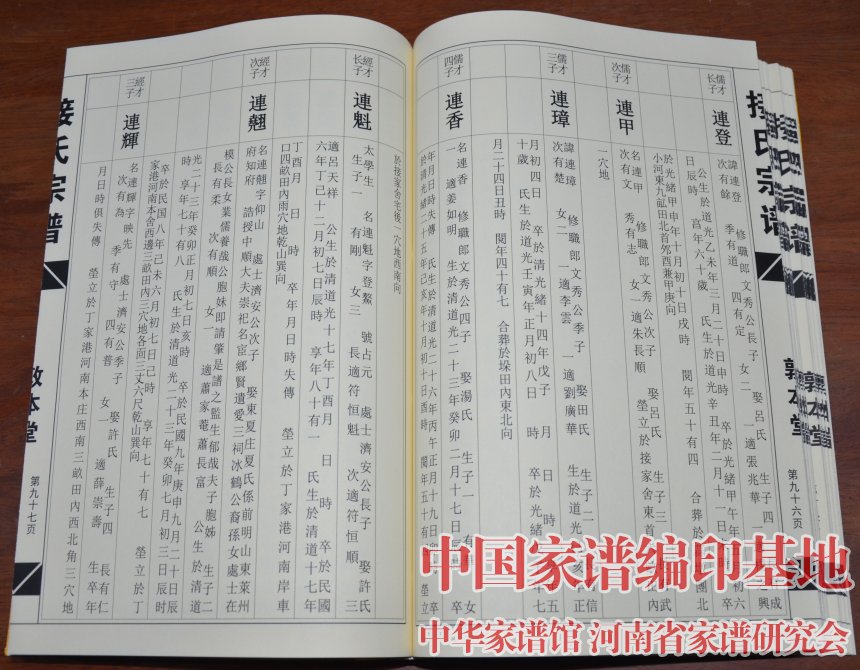 接氏宗谱
敦本堂
第九十六页
儒才
长子
連登
諱連登　修職郎文秀公長子　娶呂氏　生子四
次有餘　季有道　四有定　女二　一適張兆華
公生於道光乙未年三月二十日申時　卒於光緒甲午年五月初六
日辰時　享年六十歲　氏生於道光辛丑年二月十一日
於光緒甲申年十月初十日戌時　閱年五十有四　合葬於
小河東九畝田北首郊酉兼甲庚向
儒才
次子
連甲
名連甲　修職郎文秀公次子　娶呂氏　生子三
次有文　秀有志　女一適朱長順　塋立於接家舍東首
一穴地
儒才
三子
連璋
諱連璋　修職郎文秀公季子　娶田氏　生子二
次有楚　女二　一適李雲　一適劉廣華　生於道光
月初四日　卒於清光緒十四年戊子　月　日　時
十歲　氏生於道光壬寅年正月初八日　時　卒於光緒
月二十四日丑時　閱年四十有七　合葬於垛田內東北向
儒才
四子
連香
名連香　修職郎文秀公四子　娶湯氏　生子一　有
一適姜如明　生於清道光二十三年癸卯二月十七日
年月日時失傳　氏生於清道光二十六年丙午正月十九日
於清光緒二十五年己亥年十月初十日酉時　閱年五十有
於接家舍宅後一穴地西南向
經才
长子
連魁
太學生　名連魁字登鰲　號占元　處士濟安公長子　娶許氏
生子一　有剛　女三　長適符恒魁　次適符恒順　三
適呂天祥　公生於清道光十七年丁酉月　日　時　卒於民國
六年丁巳十二月初七日辰時　享年八十有一　氏生於清道十七年
丁酉月　日　時　卒年月日時失傳　塋立於丁家港河南岸車
口四畝田內兩穴地乾山巽向
經才
次子
連翹
名連翹字仰山　處士濟安公次子　娶東夏庄夏氏係前明山東萊州
府知府　誥授中順大夫崇祀名宦鄉賢遺愛三祠冰鶴公裔孫女處士在
模公長女業儒養哉公胞妹即請肇是譜之監生郁哉夫子胞姊　生子二
長有柔　次有順　女一　適蕭家菴蕭長富　公生於清道
光二十三年癸卯正月初七日亥時　卒於民國九年庚申九月二十日辰
時　享年七十有八　氏生於清道光二十三年癸卯七月初三日辰時
卒於民国八年己未六月初七日己時　享年七十有七　塋立於丁
家港河南本舍西邊三畝田內三穴地各囘三丈六尺乾山巽向
經才
三子
連輝
名連輝字映先　處士濟安公季子　娶許氏　生子四　長有仁
次有為　季有守　四有普　女一　適薛崇壽　生卒年
月日時俱失傳　塋立於丁家港河南本庄西南三畝田內西北角三穴地
接氏宗谱
敦本堂
第九十七页
中国家谱编印基地
中华家谱馆 河南省家谱研究会